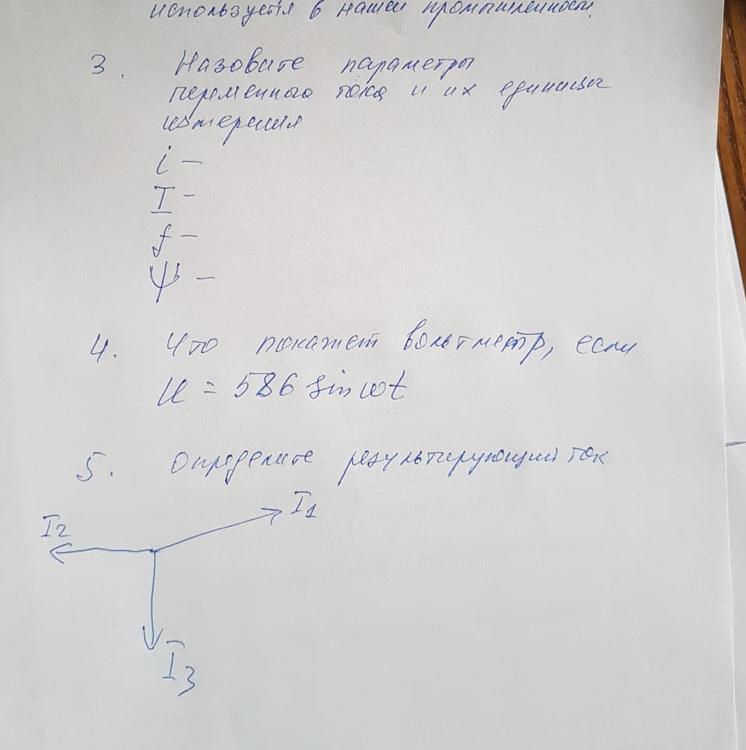 используется в нашей промышленности.
3. Назовите параметры
переменного тока и их единицы
измерения
i —
I —
f —
Ψ —
4. Что покажет вольтметр, если
u = 586 sin ωt
5. Определите результирующий ток
I1
I2
I3